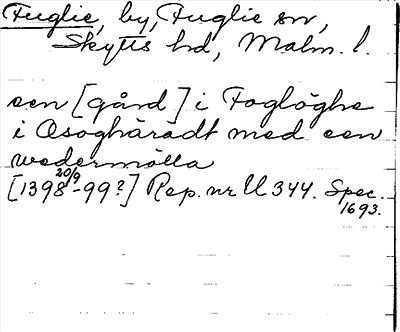 Fuglie, by, Fuglie sn,
Skytts hd, Malm. l.
een [gård] i Foglöghe
i Osoghäradt med een
wedermölla
[1398 20/9 -99?] Rep. nr U 344. Spec.
1693.